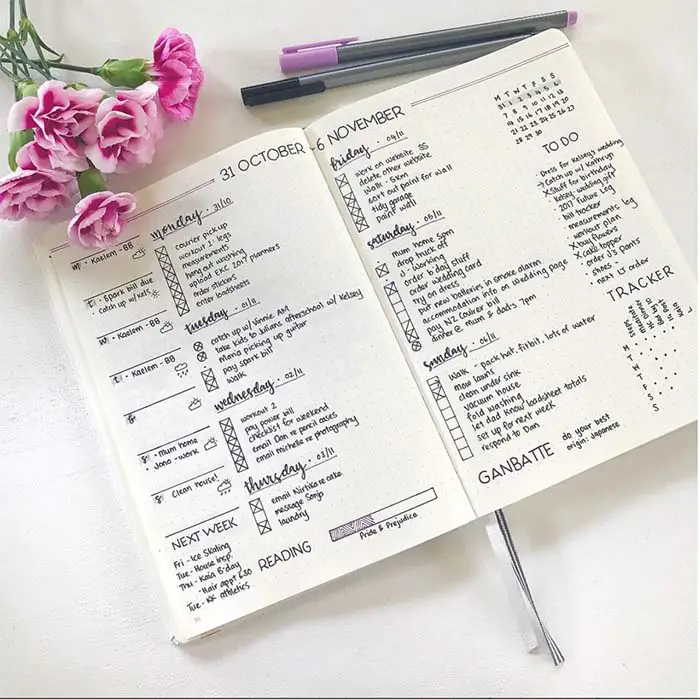 31 OCTOBER - 6 NOVEMBER
M • Kaelem - BB
T • Spark bill due
catch up w/ kels
W • Kaelem - BB
T • Kaelem - BB
F
S • Mum home
Jono - work
S Clean house!
NEXT WEEK
Fri - Ice Skating
Tue - House insp.
Thu - Kaia B'day
- Hair appt 6:30
Tue - KK athletics
monday • 31/10
courier pick up
workout 1: legs
measurements
hang out washing
upload EKC 2017 planners
order stickers
enter loadsheets
tuesday • 01/11
catch up w/ Finnie AM
take kids to Julians afterschool w/ Kelsey
Mana picking up guitar
pay spark bill
walk
wednesday • 02/11
workout 2
pay power bill
checklist for weekend
email Dan re pencil cases
email michelle re photography
thursday • 03/11
email Nirtika re cake
message Sonja
laundry
READING
Pride & Prejudice
friday • 04/11
work on website SS
delete other website
walk - 5km
sort out paint for wall
tidy garage
paint wall
saturday • 05/11
• mum home 5pm
drop truck off
J - working
order b'day stuff
order wedding card
try on dress
put new batteries in smoke alarm
accommodation info on wedding page
pay 1/2 Cadver bill
dinner @ mum & dad's 7pm
sunday • 06/11
walk - pack hat, fitbit, lots of water
mow lawns
clean under sink
vacuum house
fold washing
let dad know loadsheet totals
set up for next week
respond to Dan
GANBATTE do your best
origin: Japanese
M T W T F S S
31 1 2 3 4 5 6
7 8 9 10 11 12 13
14 15 16 17 18 19 20
21 22 23 24 25 26 27
28 29 30
TO DO
• Dress for Kelsey's wedding
→ Catch up w/ Kathryn
X Stuff for birthday
• Kelsey - wedding gift
• 2017 Future Log
• bill tracker
• measurements log
• workout plan
X buy flowers
X cake topper
• order J's pants
• shoes -
• next LJ order
TRACKER
M
T
W
T
F
S
S